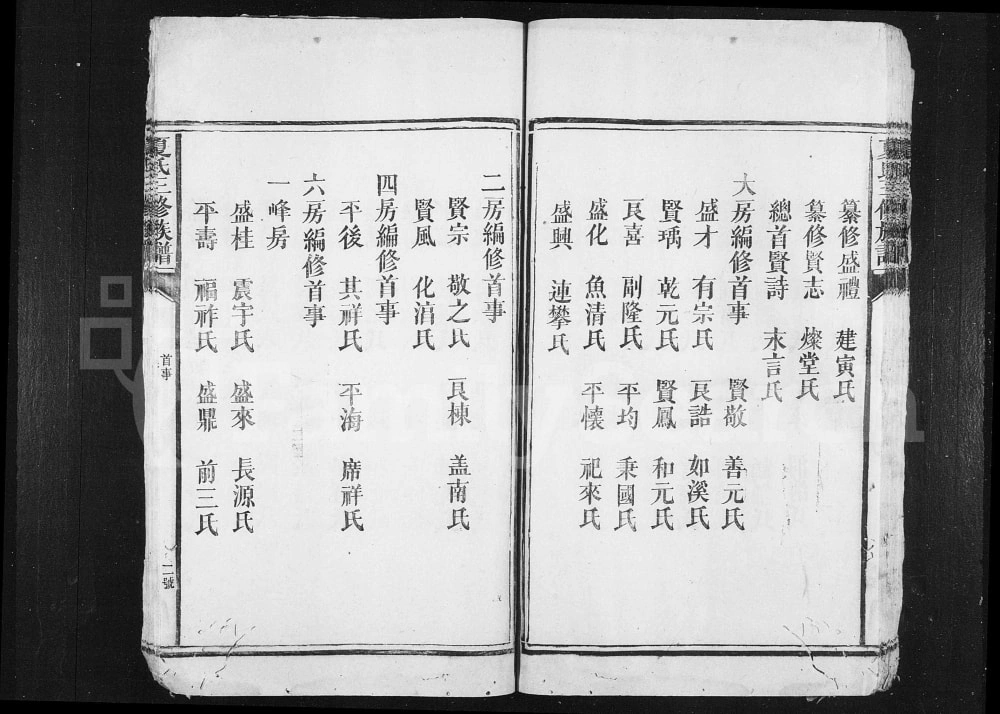 纂修盛禮 建寅氏
纂修賢志 燦堂氏
總首賢詩 永言氏
大房編修首事 賢敬 善元氏
盛才 有宗氏 良誥 如溪氏
賢瑀 乾元氏 賢鳳 和元氏
良喜 副隆氏 平均 秉國氏
盛化 魚清氏 平懷 祀來氏
盛興 連攀氏
二房編修首事
賢宗 敬之氏 良棟 蓋南氏
賢風 化涓氏
四房編修首事
平後 其祥氏 平海 席祥氏
六房編修首事
一峰房
盛桂 震宇氏 盛來 長源氏
平壽 福祚氏 盛鼎 前三氏
夏氏三修族譜
首事
二號